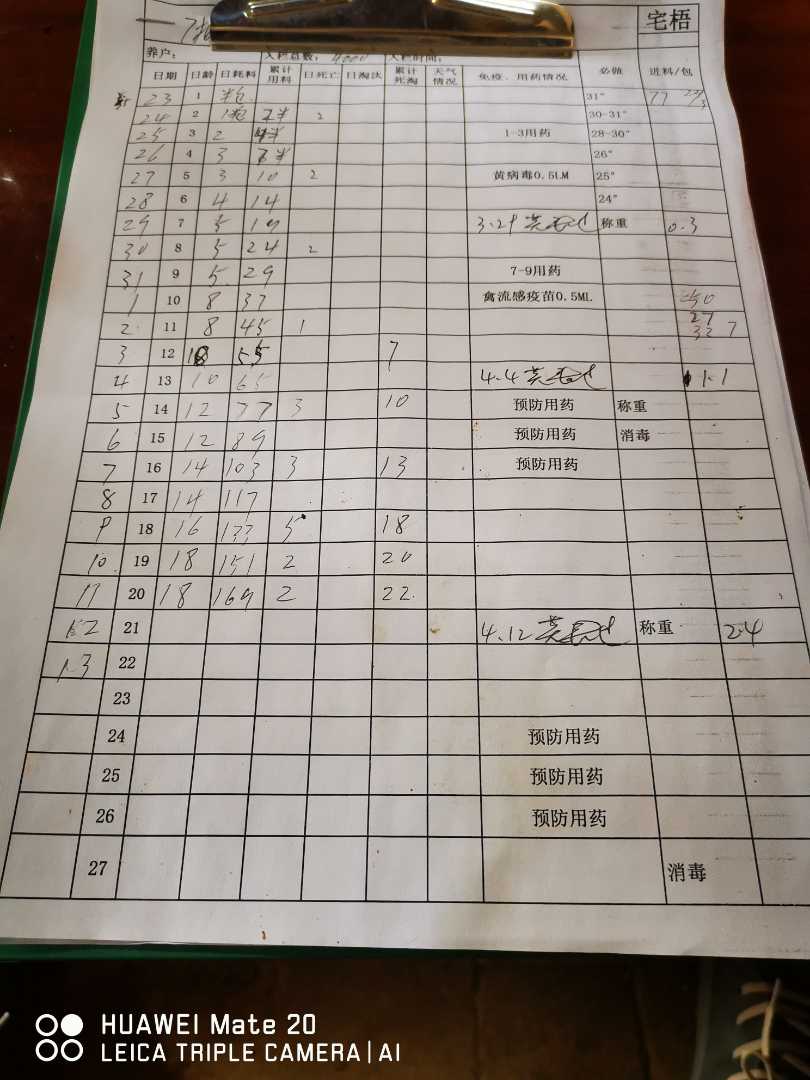 宅梧
养户: 入栏总数: 4000 入栏时间:
日期 日龄 日耗料 累计用料 日死亡 日淘汰 累计死淘 天气情况 免疫、用药情况 必做 进料/包
23 1 半包 31° 77
24 2 1包 2 30-31°
25 3 2 4半 1-3用药 28-30°
26 4 3 7半 26°
27 5 3 10 2 黄病毒0.5LM 25°
28 6 4 14 24°
29 7 5 19 3.29 称重 0.3
30 8 5 24 2
31 9 5 29 7-9用药
1 10 8 37 禽流感疫苗0.5ML 50
2 11 8 45 1 27
32 7
3 12 55 7
4 13 10 65 4.4 1.1
5 14 12 77 3 10 预防用药 称重
6 15 12 89 预防用药 消毒
7 16 14 103 3 13 预防用药
8 17 14 117
9 18 16 133 5 18
10 19 18 151 2 20
11 20 18 169 2 22
12 21 4.12 称重 2.4
13 22
23
24 预防用药
25 预防用药
26 预防用药
27 消毒
HUAWEI Mate 20
LEICA TRIPLE CAMERA | AI